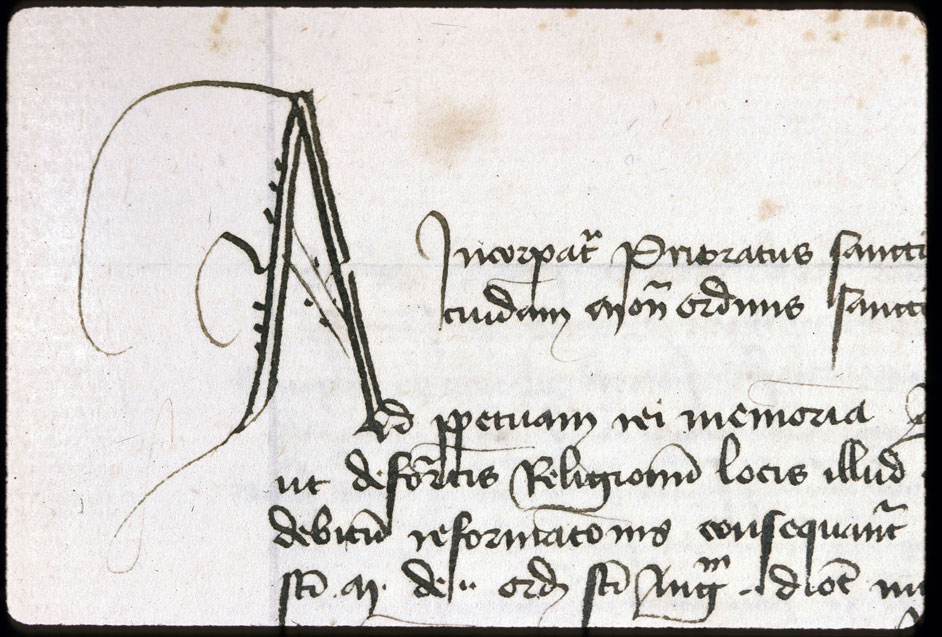 Incorpat̄ Prioratus sancti
cuidam mon̄ ordinis sancti
Ad ppetuam rei memoria
ut deford̄tis Religionū locis illud
debitū reformatōnis consequant̄
sti m de·· ord sti Auḡ dioē